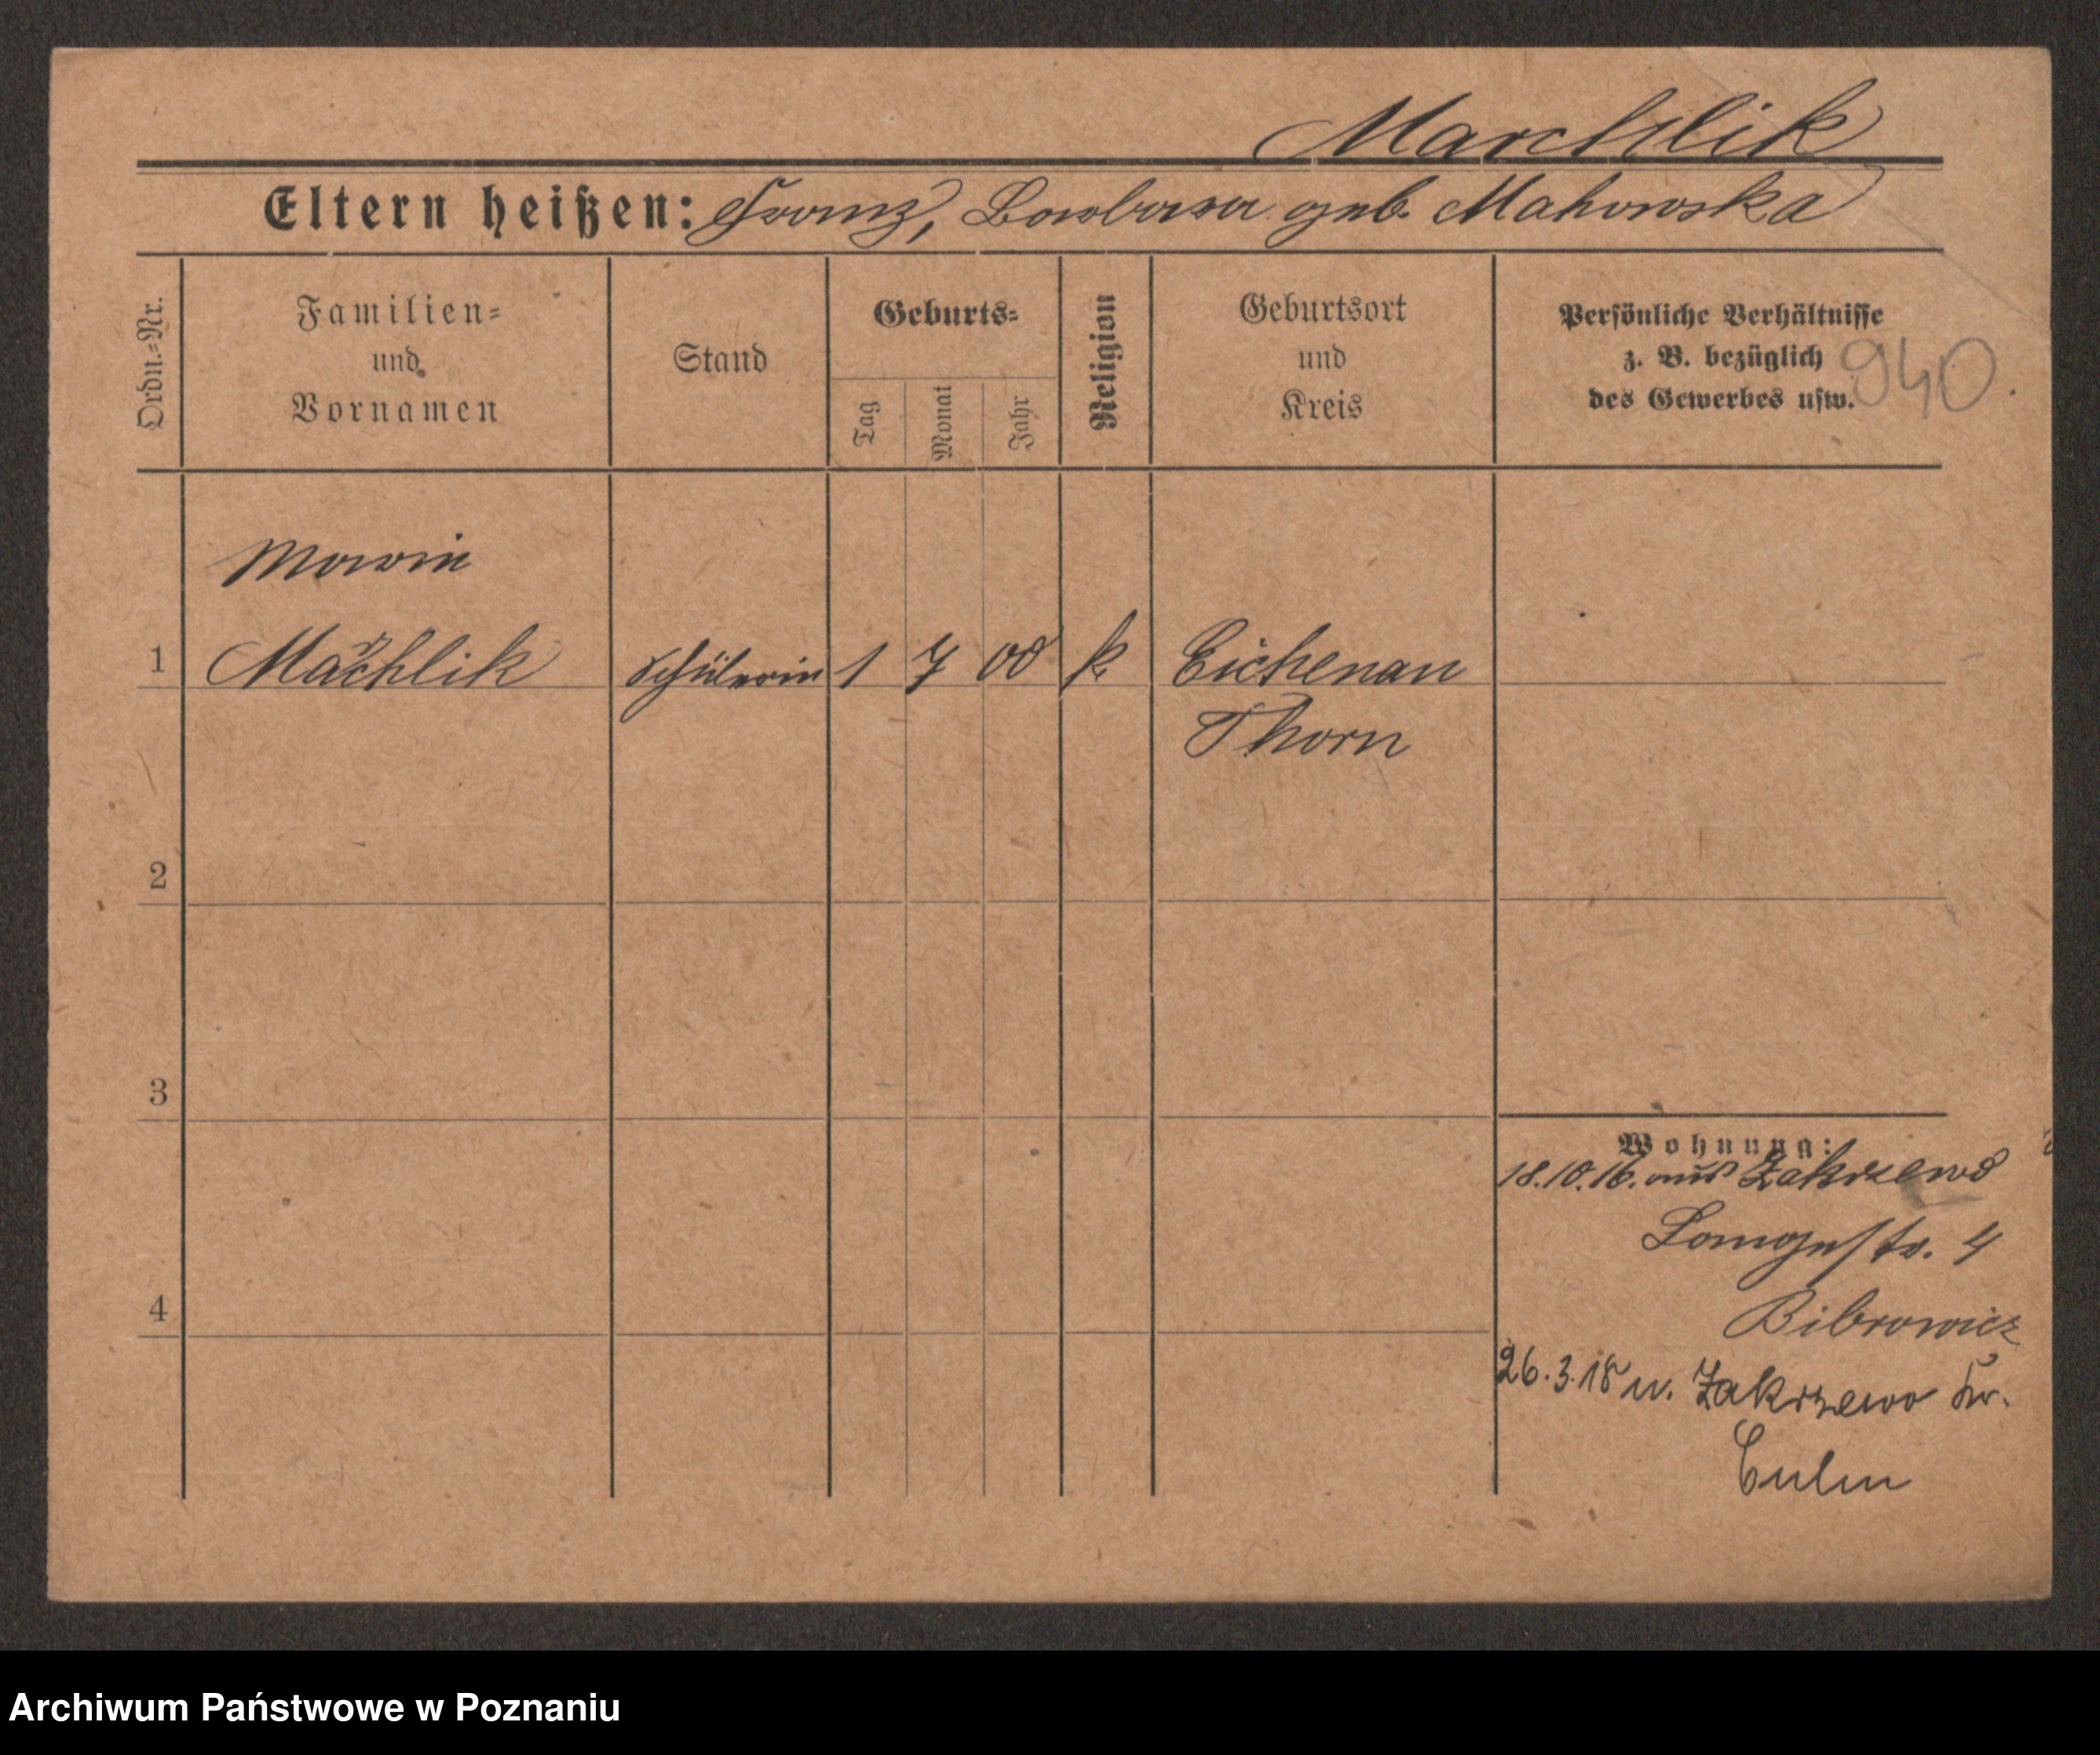 Marchlik
Eltern heißen: Franz, Barbara geb. Makowska
Ordn.-Nr.
Familien- und Vornamen
Stand
Geburts-
Tag
Monat
Jahr
Religion
Geburtsort und Kreis
Persönliche Verhältnisse
z. B. bezüglich
des Gewerbes usw.
940.
Marie
1 Marchlik Schülerin 1 7 00 k Eichenau
Thorn
2
3
4
Wohnung:
18.10.16. aus Zakrzewo
Langestr. 4
Bibrowicz
26.3.18 n. Zakrzewo Kr.
Culm
Archiwum Państwowe w Poznaniu